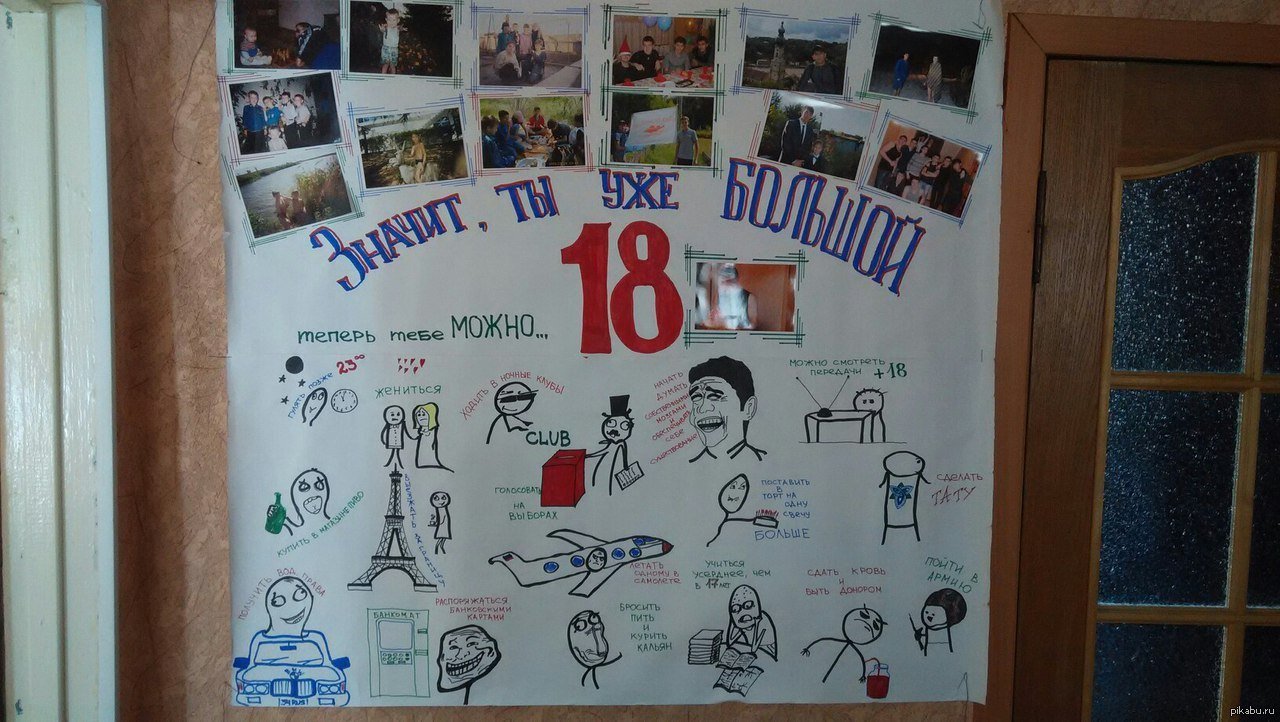 Значит, ты уже БОЛЬШОЙ
18
теперь тебе МОЖНО...
гулять позже 23⁰⁰
ЖЕНИТЬСЯ
ХОДИТЬ В НОЧНЫЕ КЛУБЫ
CLUB
НАЧАТЬ
ДУМАТЬ
СОБСТВЕННЫМИ
МОЗГАМИ
И
ОБЕСПЕЧИВАТЬ
СЕБЕ
СУЩЕСТВОВАНИЕ
МОЖНО СМОТРЕТЬ
ПЕРЕДАЧИ +18
КУПИТЬ В МАГАЗИНЕ ПИВО
ГОЛОСОВАТЬ
НА
ВЫБОРАХ
ПОСТАВИТЬ
В
ТОРТ НА
ОДНУ
СВЕЧУ
БОЛЬШЕ
СДЕЛАТЬ
ТАТУ
ПОЛУЧИТЬ ВОД. ПРАВА
РАСПОРЯЖАТЬСЯ
БАНКОВСКИМИ
КАРТАМИ
БАНКОМАТ
ЛЕТАТЬ
ОДНОМУ В
САМОЛЕТЕ
БРОСИТЬ
ПИТЬ
И
КУРИТЬ
КАЛЬЯН
УЧИТЬСЯ
УСЕРДНЕЕ, ЧЕМ
В 17 ЛЕТ
СДАТЬ КРОВЬ
И
БЫТЬ ДОНОРОМ
ПОЙТИ В
АРМИЮ
pikabu.ru